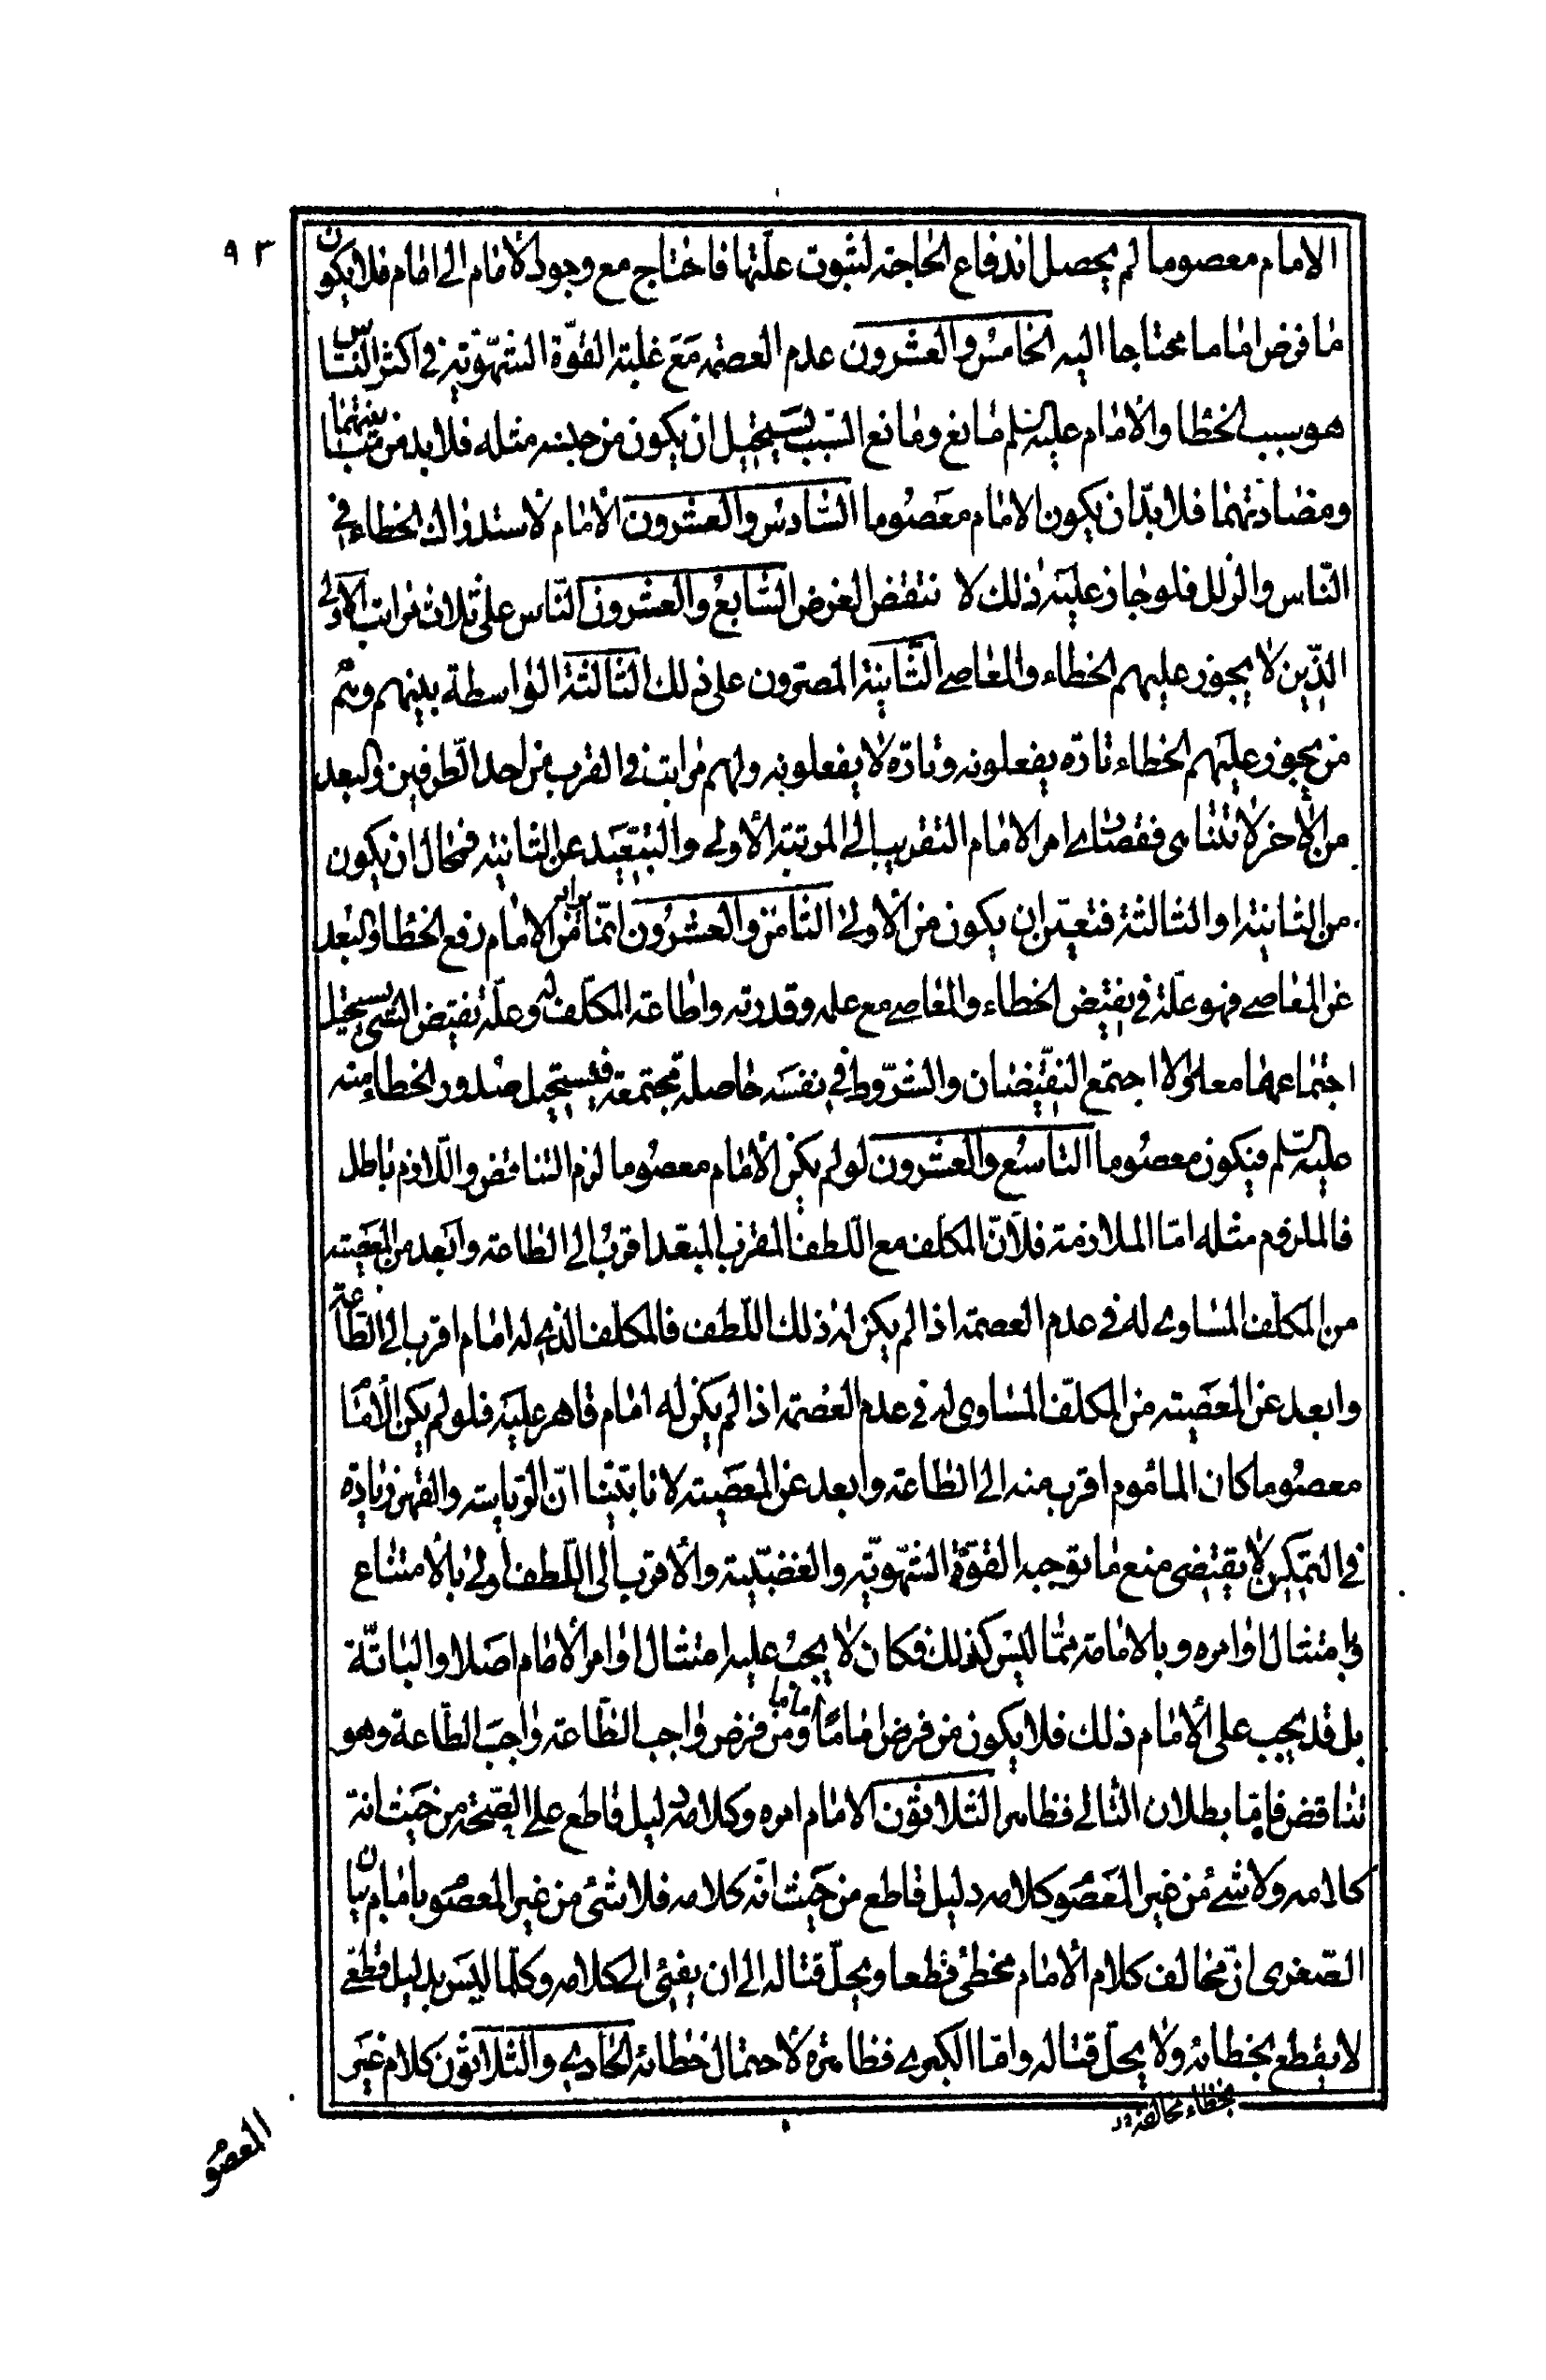 ٩٣
الامام معصوما لم يحصل اندفاع الحاجة لثبوت علتها فاحتاج مع وجود الامام الى امام فلا يكون
ما فرض اماما محتاجا اليه الخامس والعشرون عدم العصمة مع غلبة القوة الشهوية في اكثر الناس
هو سبب الخطا والامام عليه السلم مانع ومانع السبب يستحيل ان يكون من جنسه مثله فلا بد من
ومضادتهما فلا بد ان يكون الامام معصوما السادس والعشرون الامام لاستدراك الخطاء في
الناس والزلل فلو جاز عليه ذلك لا نتقض الغرض السابع والعشرون الناس على ثلاث مراتب الاولى
الذين لا يجوز عليهم الخطاء والمعاصي الثانية المصرون على ذلك الثالثة الواسطة بينهم وهم
من يجوز عليهم الخطاء تارة يفعلونه وتارة لا يفعلونه ولهم مراتب في القرب من احد الطرفين والبعد
من الاخر لا تتناهى امر الامام التقريب الى المرتبة الاولى والتبعيد عن الثانية فمحال ان يكون
من الثانية او الثالثة فتعين ان يكون من الاولى الثامن والعشرون انما الامام رفع الخطا والبعد
عن المعاصي فهو علة في نقيض الخطاء والمعاصي مع علمه وقدرته واطاعة المكلف له وعلة نقيض الشئ يستحيل
اجتماعها معه والا اجتمع النقيضان والشروط في نفسه حاصلة مجتمعة فيستحيل صدور الخطاء منه
عليه السلم فيكون معصوما التاسع والعشرون لو لم يكن الامام معصوما لزم التناقض واللازم باطل
فالملزوم مثله اما الملازمة فلان المكلف مع اللطف المقرب المبعد اقرب الى الطاعة وابعد من المعصية
من المكلف المساوي له في عدم العصمة اذا لم يكن له ذلك اللطف فالمكلف الذي له امام اقرب الى الطاعة
وابعد عن المعصية من المكلف المساوي له في عدم العصمة اذا لم يكن له امام قاهر عليه فلو لم يكن الاما
معصوما كان الماموم اقرب منه الى الطاعة وابعد عن المعصية لانا بينا ان الرياسة والقهر زيادة
في التمكين لا يقتضي منع ما توجبه القوة الشهوية والغضبية والاقرب الى اللطف اولى بالامتناع
وامتثال اوامره وبالامامة مما ليس كذلك فكان لا يجب عليه امتثال اوامر الامام اصلا والباتة
بل قد يجب على الامام ذلك فلا يكون من فرض اماما اماما ومن فرض واجب الطاعة واجب الطاعة وهو
تناقض فاما بطلان التالي فظاهر الثلاثون الامام امره وكلامه دليل قاطع على الصحة من حيث انه
كلامه ولا شئ من غير المعصو كلامه دليل قاطع من حيث انه كلامه فلا شئ من غير المعصو بامام بيان
الصغرى ان مخالف كلام الامام مخطئ قطعا ويحل قتاله الى ان يفئ الى كلامه وكلما ليس بدليل قطعي
لا يقطع بخطائه ولا يحل قتاله واما الكبرى فظاهرة لاحتمال خطائه الحادي والثلاثون كلام غير
بخطاء مخالفه
المعصو